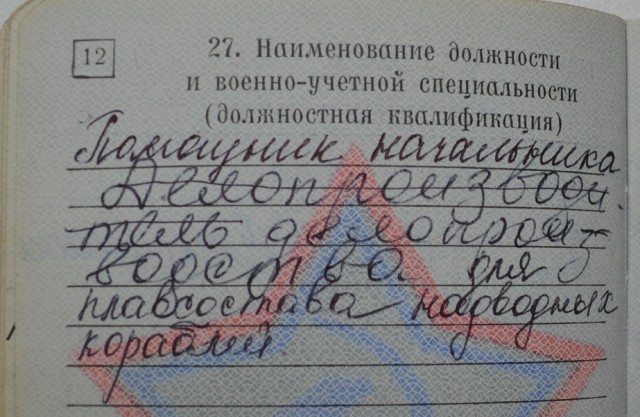 12
27. Наименование должности
и военно-учетной специальности
(должностная квалификация)
Помощник начальника
Делопроизводи-
тель делопроиз-
водства для
плавсостава надводных
кораблей